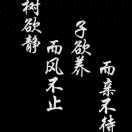 树欲静
而风不止
子欲养
而亲不待